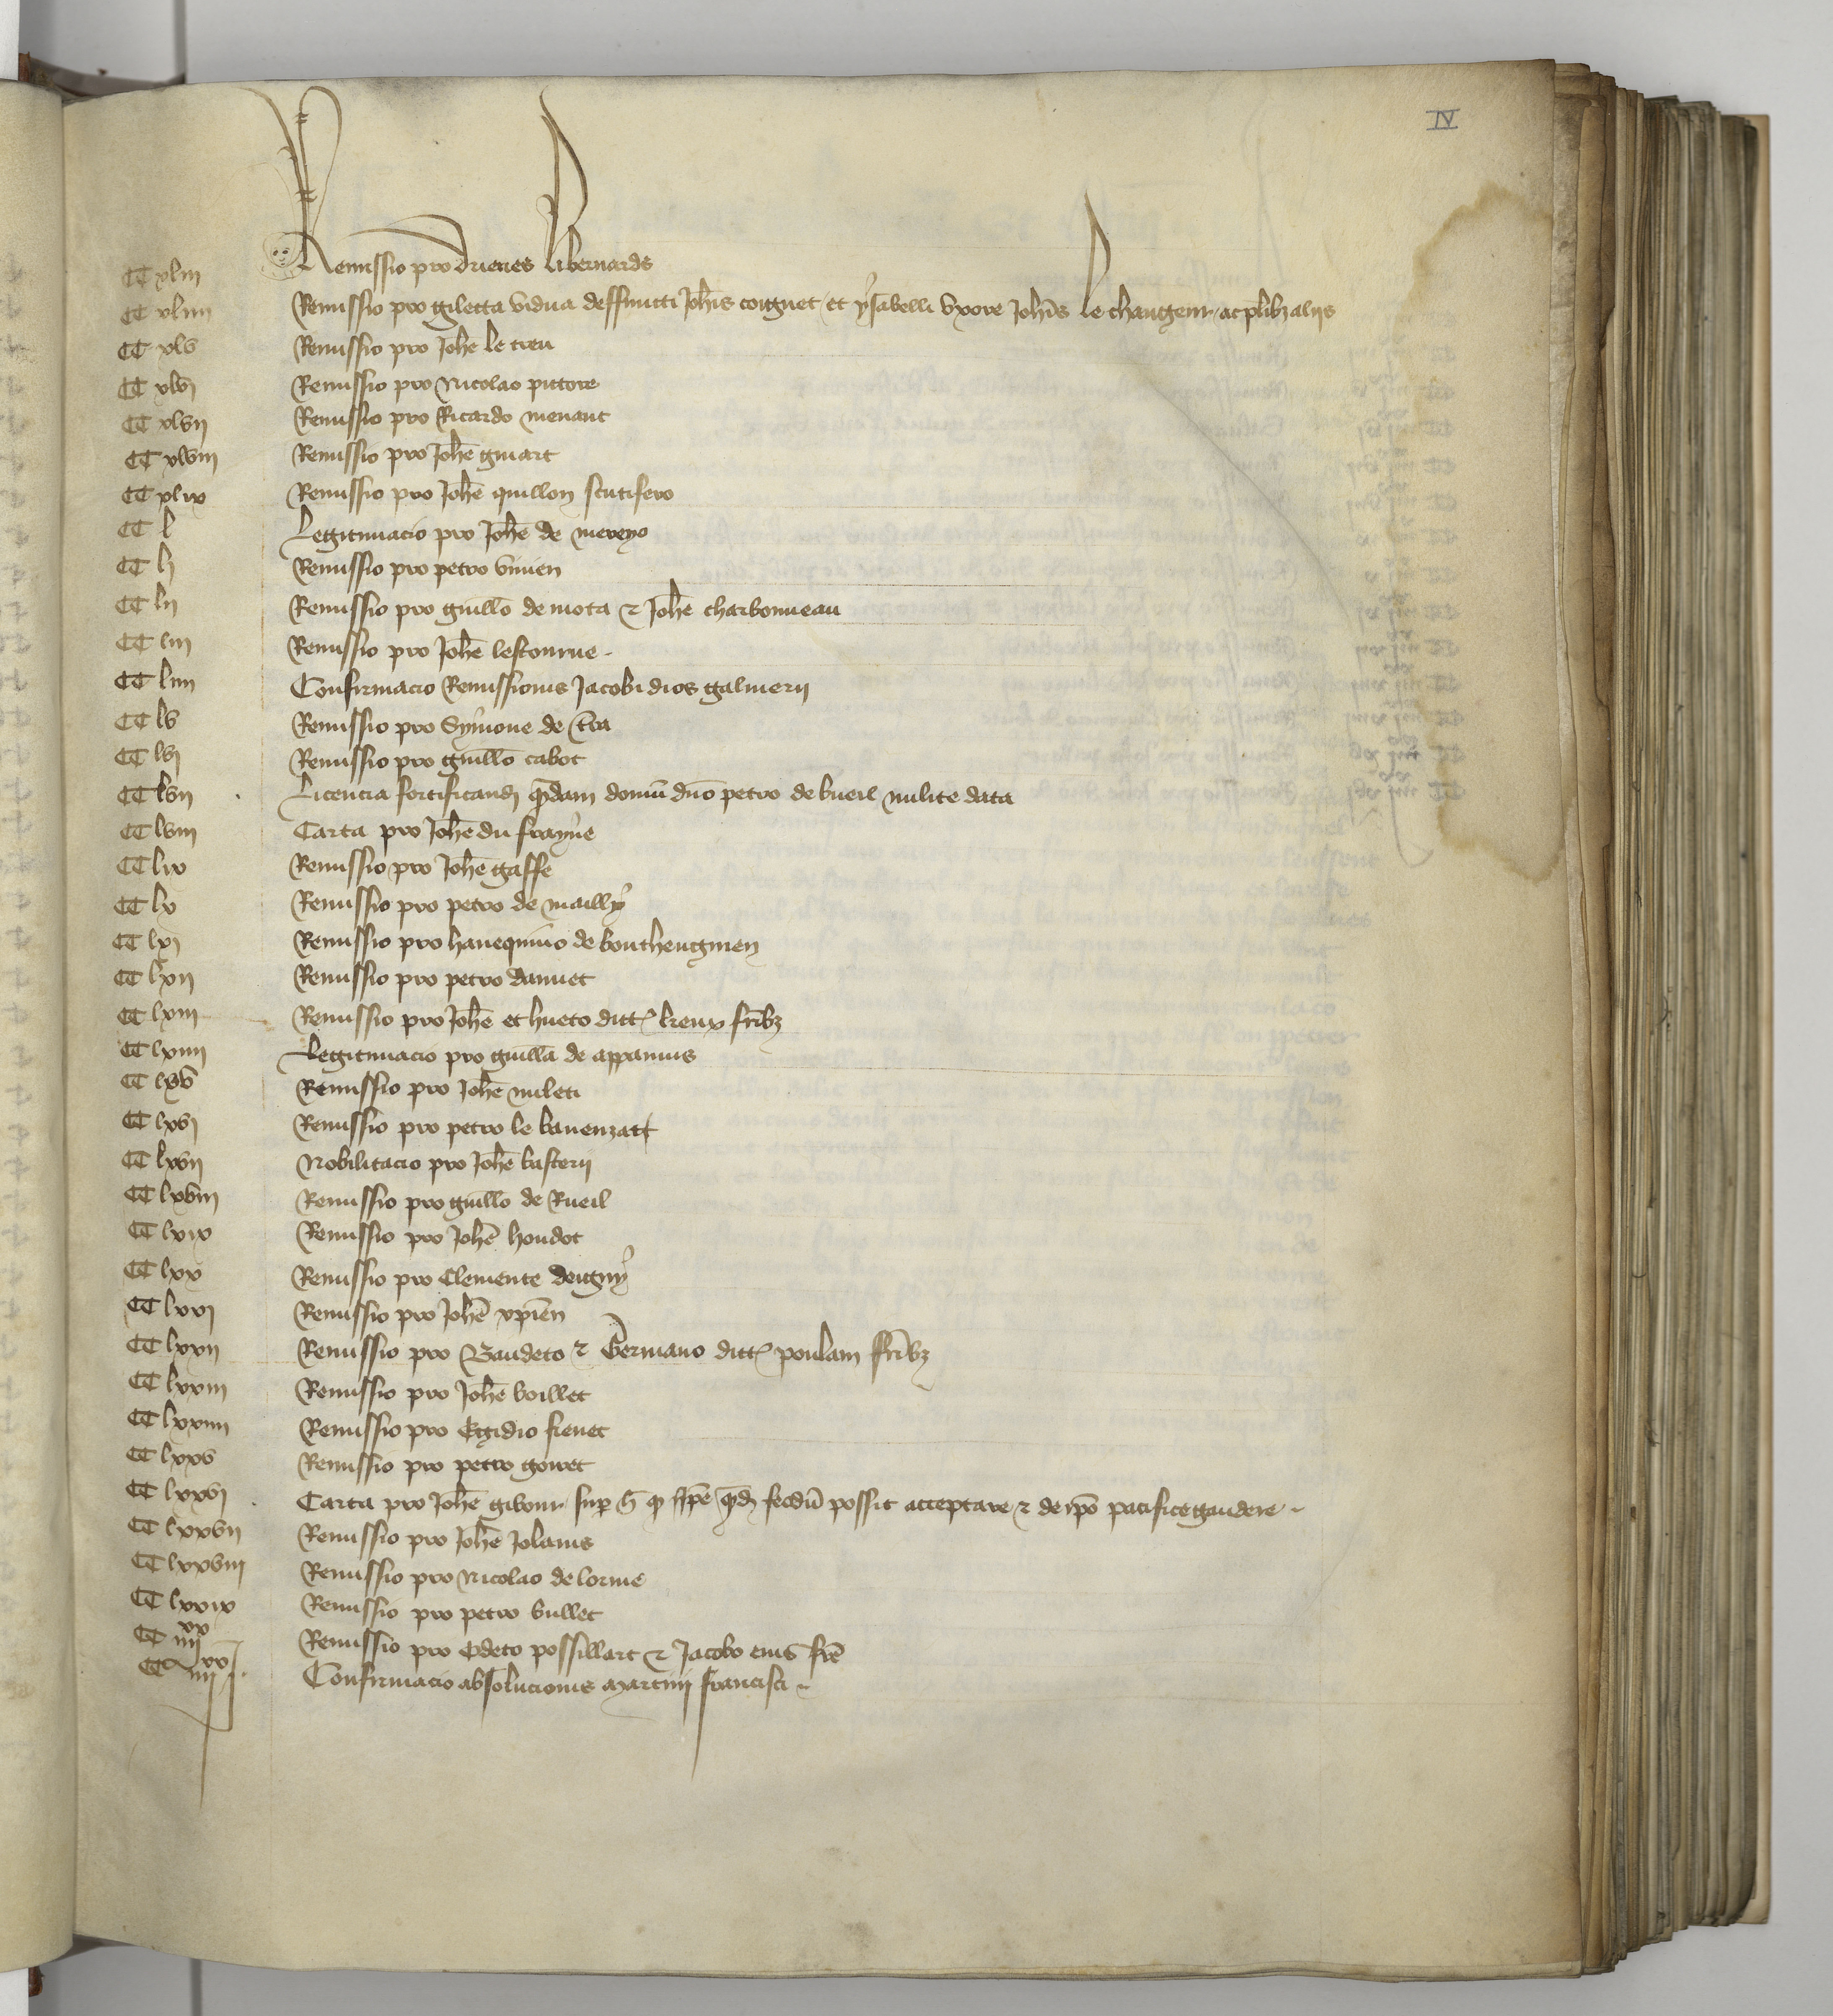 IV
CC xliii Remissio pro Drieues libernards
CC xliiii Remissio pro giletta vidua deffuncti Joh̄is coignet et ẏsabelli vxore Joh̄is le changeur ac plibz aliis
CC xlv Remissio pro Joh̄e le treu
CC xlvj Remissio pro Nicolao pictore
CC xlvii Remissio pro Ricardo menant
CC xlviii Remissio pro Joh̄e guiart
CC xlix Remissio pro Joh̄e quillon scutifero
CC l Legitimacio pro Joh̄e de mereyo
CC lj Remissio pro petro vimen
CC lii Remissio pro guill̄o de mota ⁊ Joh̄e charbonneau
CC liii Remissio pro Joh̄e lestourne
CC liiii Confirmacio Remissionis Jacobi dios galmerii
CC lv Remissio pro Sẏmone de t̄ra
CC lvj Remissio pro guill̄o cabot
CC lvii Licencia fortificandj q̄dam domū dn̄o petro de bueil milite data
CC lviii Carta pro Joh̄e du fraẏne
CC lix Remissio pro Joh̄e gaffe
CC lx Remissio pro petro de maillẏ
CC lxj Remissio pro hanequino de bouthengmen
CC lxii Remissio pro petro danuet
CC lxiii Remissio pro Joh̄e et hueto dict̄ breux fr̄ibz
CC lxiiii Legitimacio pro guill̄a de appamiis
CC lxv Remissio pro Joh̄e mileti
CC lxvj Remissio pro petro le bauenzatt
CC lxvii Nobilitacio pro Joh̄e basterii
CC lxviii Remissio pro guill̄o de Rueil
CC lxix Remissio pro Joh̄e houdot
CC lxx Remissio pro Clemente doignẏ
CC lxxj Remissio pro Joh̄e xp̄ien
CC lxxii Remissio pro Gaudeto ⁊ Germano dict̄ poulain fr̄ibz
CC lxxiii Remissio pro Joh̄e boillet
CC lxxiiii Remissio pro Egidio fienet
CC lxxv Remissio pro petro goret
CC lxxvj Carta pro Joh̄e gibour sup̱ h̄ q̱ ip̄e q̄dz feodū possit acceptare ⁊ de ip̄o pacifice gaudere
CC lxxvii Remissio pro Joh̄e Jolanis
CC lxxviii Remissio pro Nicolao de lorme
CC lxxix Remissio pro petro bullet
CC iiii xx Remissio pro Odeto possillart ⁊ Jacobo eius fr̄e
CC iiii xx j Confirmacio absolucionis martini francisci